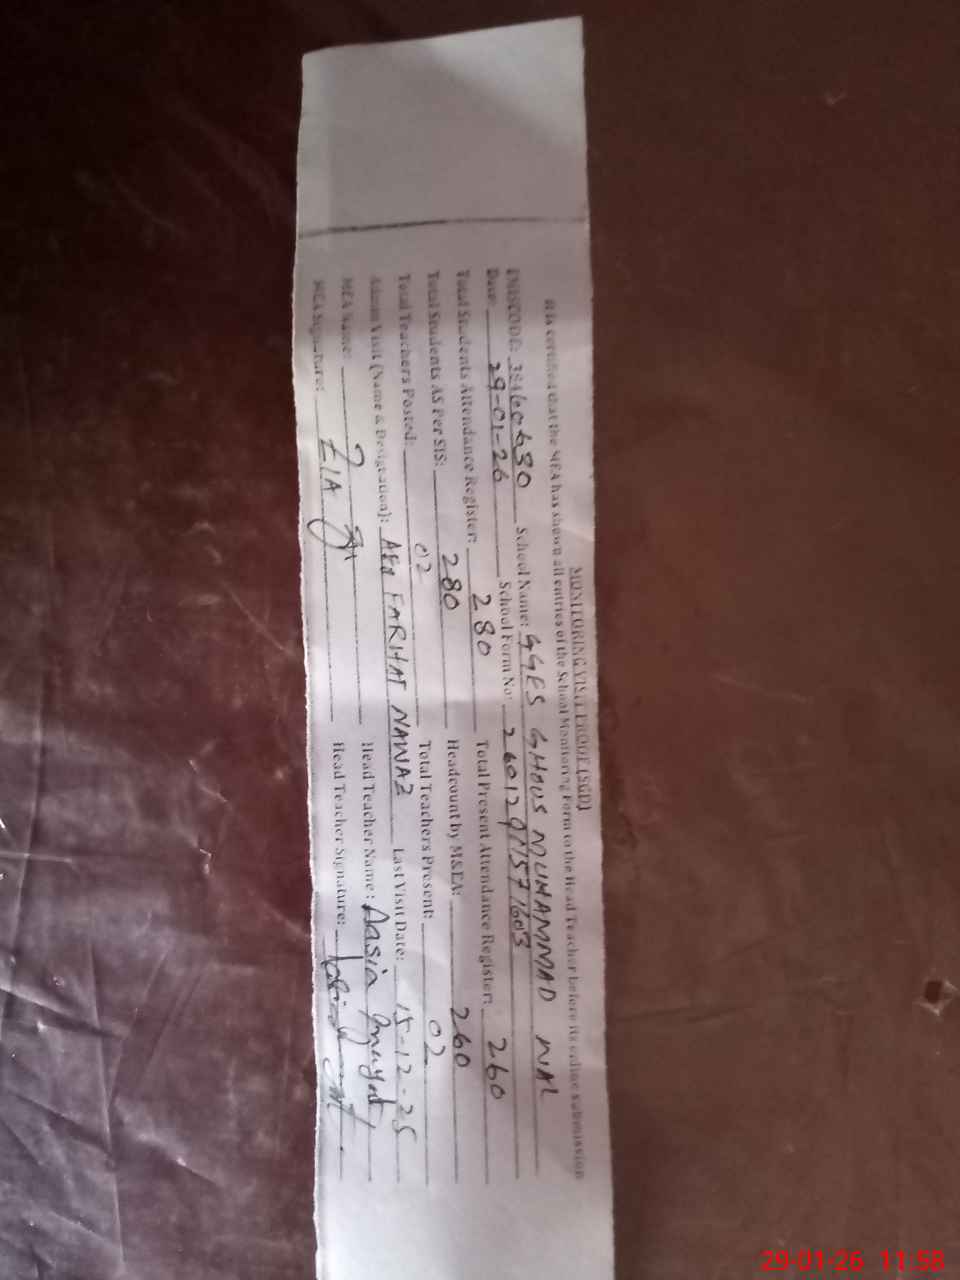 MONITORING VISIT PROOF (SGD)
It is certified that the MEA has shown all entries of the School Monitoring Form to the Head Teacher before its online submission
EMISCODE: School Name: GGES GHOUS MUHAMMAD WAL
Date: 29-01-26 School Form No:
Total Students Attendance Register: 280 Total Present Attendance Register: 260
Total Students AS Per SIS: 280 Headcount by M&EA: 260
Total Teachers Posted: 02 Total Teachers Present: 02
Admin Visit (Name & Designation): FARHAT NAWAZ Last Visit Date: 15-12-25
MEA Name: Head Teacher Name: Aasia
MEA Signature: Head Teacher Signature:
29-01-26 11:58